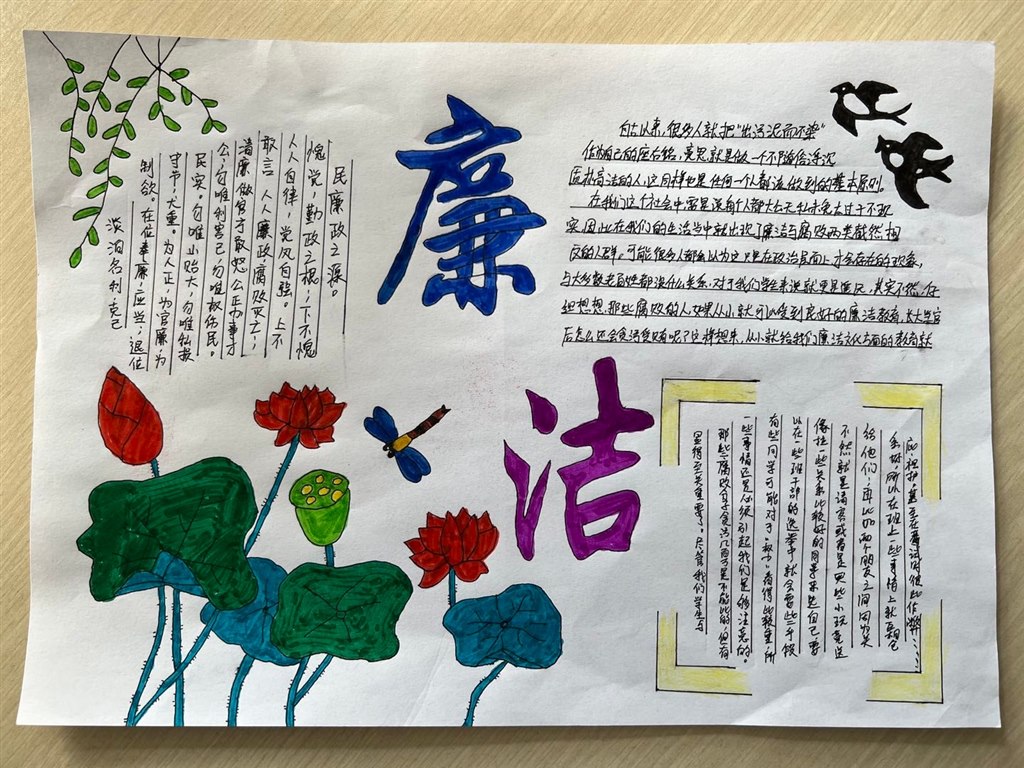 廉
洁
民廉政之源。
愧党，勤政之根，下不愧
人人自律，党风自强。上不
敢言，人人廉政腐败灭亡；
清廉做官才敢恕公正办事才
公，勿唯利害己勿唯权伤民。
民实。勿唯小贻大，勿唯私损
守节大重。为人正，为官廉，为
制欲。在位奉廉，应当，退位
淡泊名利，克己
自古以来，很多人就把"出污泥而不染"
作为自己的座右铭，竟究就是做一个不随俗浮沉
质朴高洁的人，这同样也是任何一个人都该做到的基本原则。
在我们这个社会中
实，因此在我们的生活当中就出现了廉洁与腐败两类截然相
反的人群。可能很多人都会以为这只是在政治层面上才会存在的现象，
与大多数老百姓都没什么关系，对于我们学生来说就更是遥远，其实不然，你
想想，那些腐败的人，如果从小就可以受到良好的廉洁教育，长大当官
后怎么还会贪污受贿呢？这样想来，从小就给我们廉洁文化方面的教育就
显得至关重要了。尽管我们学生与
那些腐败分子贪污几百万是不能比的，但有
一些事情还是必须引起我们足够注意的。
有些同学可能对于"权力"看得比较重，所
以在一些班干部的选举中就会要些手段
像拉一些关系比较好的同学来选自己，要
不然就是请客或者是买些小玩意送
给他们，再比如两个朋友之间因为关
系好，所以在班上一些事情上就互相包
庇、袒护，甚至在考试时彼此作弊……